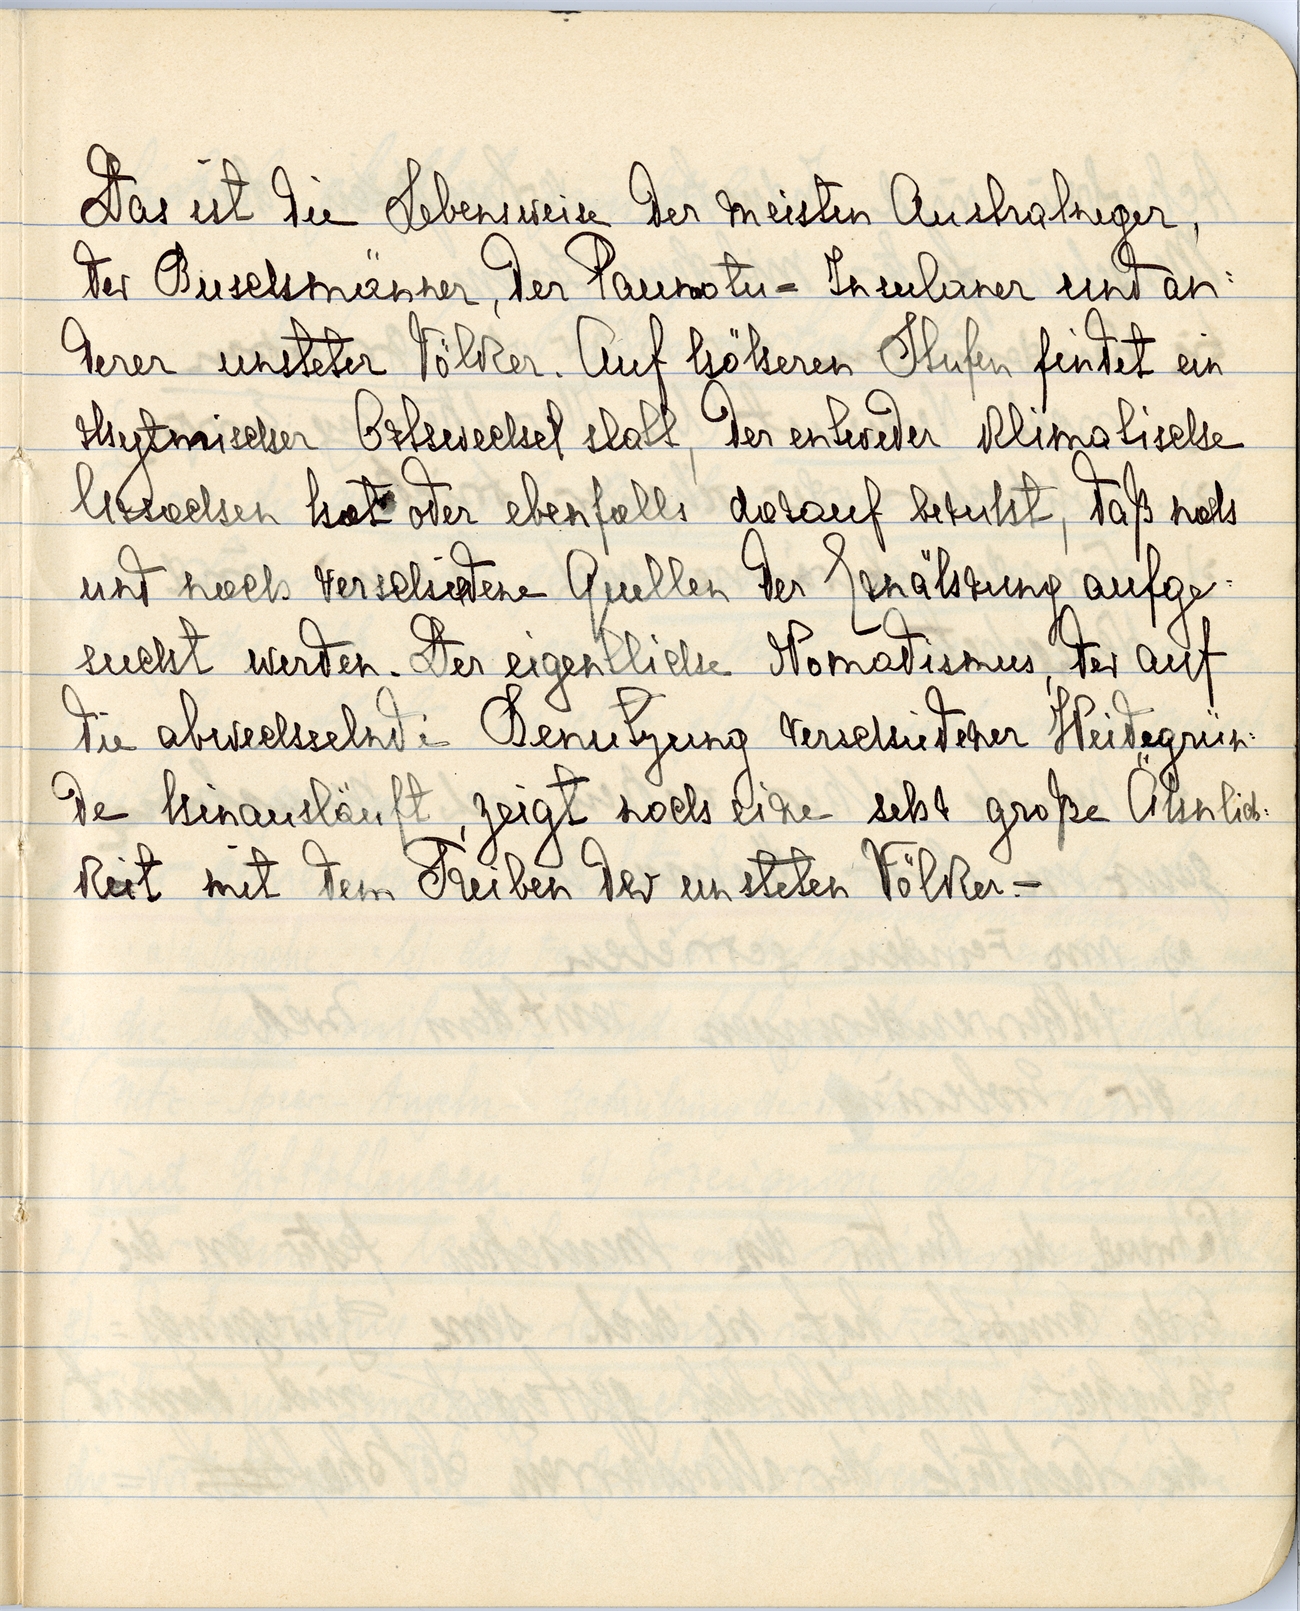 Das ist die Lebensweise der meisten Australneger,
der Buschmänner, der Paumotu= Insulaner und an:
derer unsteter Völker. Auf höheren Stufen findet ein
rhytmischer Ortswechsel statt, der entweder klimatische
Ursachen hat oder ebenfalls darauf beruht, daß nach
und nach verschiedene Quellen der Ernährung aufge:
sucht werden. Der eigentliche Nomadismus, der auf
die abwechselnde Benutzung verschiedener Weidegrün:
de hinausläuft, zeigt noch eine sehr große Ähnlich:
keit mit dem Treiben der unsteten Völker.–